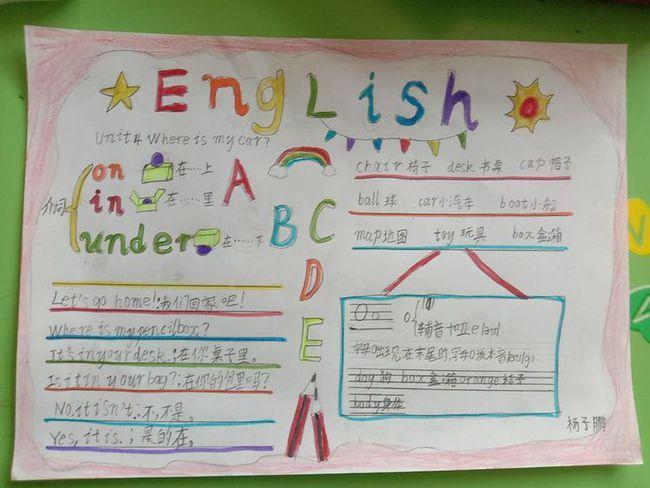 English
Unit4 Where is my car?
介词
on 在……上
in 在……里
under 在……下
A
B
C
D
E
chair 椅子 desk 书桌 cap 帽子
ball 球 car 小汽车 boat 小船
map 地图 toy 玩具 box 盒;箱
Let's go home!;我们回家吧!
Where is my pencil box?
It's in your desk.;在你桌子里。
Is it in your bag?;在你的包里吗?
No, it isn't.;不,不是。
Yes, it is.;是的在,
Oo
dog 狗 box 盒;箱 orange 桔子
body 身体
杨子鹏